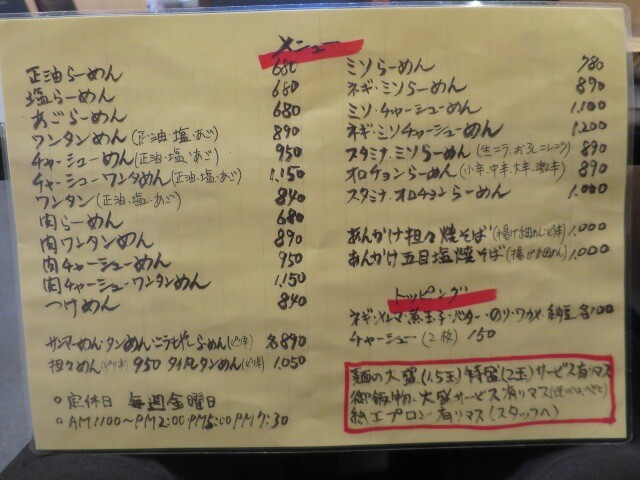 メニュー
正油らーめん 680
塩らーめん 680
あごらーめん 680
ワンタンめん(正油・塩・あご) 890
チャーシューめん(正油・塩・あご) 950
チャーシューワンタンめん(正油・塩・あご) 1.150
ワンタン(正油・塩・あご) 840
肉らーめん 680
肉ワンタンめん 890
肉チャーシューめん 950
肉チャーシューワンタンめん 1.150
つけめん 840
サンマーめん・タンめん・ニラもやしらーめん 各890
担々めん 950 タイタンめん 1.050
○定休日 毎週金曜日
○AM11:00〜PM2:00 PM5:00 PM7:30
ミソらーめん 780
ネギ・ミソらーめん 890
ミソ・チャーシューめん 1.100
ネギ・ミソチャーシューめん 1.200
スタミナ・ミソらーめん(生ニラ・おろしニンニク) 890
オロチョンらーめん(小辛.中辛.大辛.激辛) 890
スタミナ・オロチョンらーめん 1.000
あんかけ担々焼そば 1.000
あんかけ五目塩焼そば 1.000
トッピング
ネギ・メンマ・煮玉子・バター・のり・ワカメ・納豆 各100
チャーシュー(2枚) 150
麺の大盛(1.5玉)特盛(2玉)サービス有りマス
御飯物・大盛サービス有りマス
紙エプロン有りマス(スタッフへ)